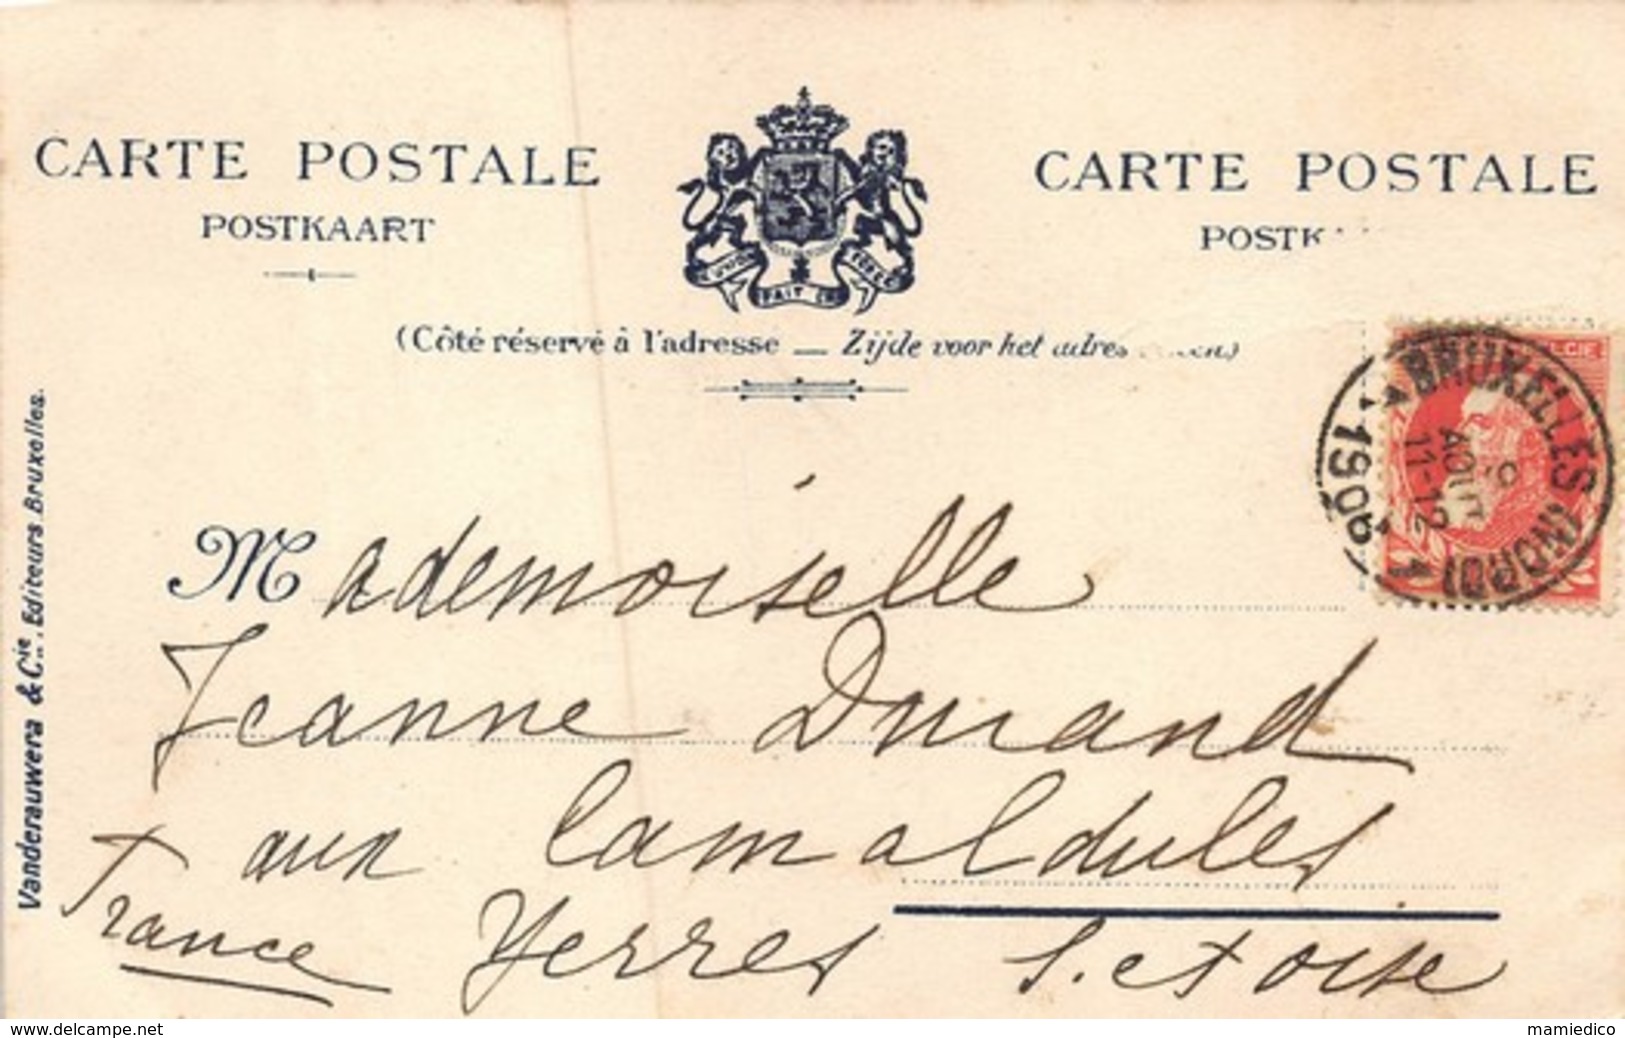 CARTE POSTALE
POSTKAART
CARTE POSTALE
POSTK
L'UNION FAIT LA FORCE
(Côté réservé à l'adresse — Zijde voor het adres
Vanderauwera & Cie. Editeurs Bruxelles.
BRUXELLES (NORD) 1
AOUT
11-12
LGIE
Mademoiselle
Jeanne Durand
aux Camaldules
Yerres S. et Oise
France
www.delcampe.net
mamiedico